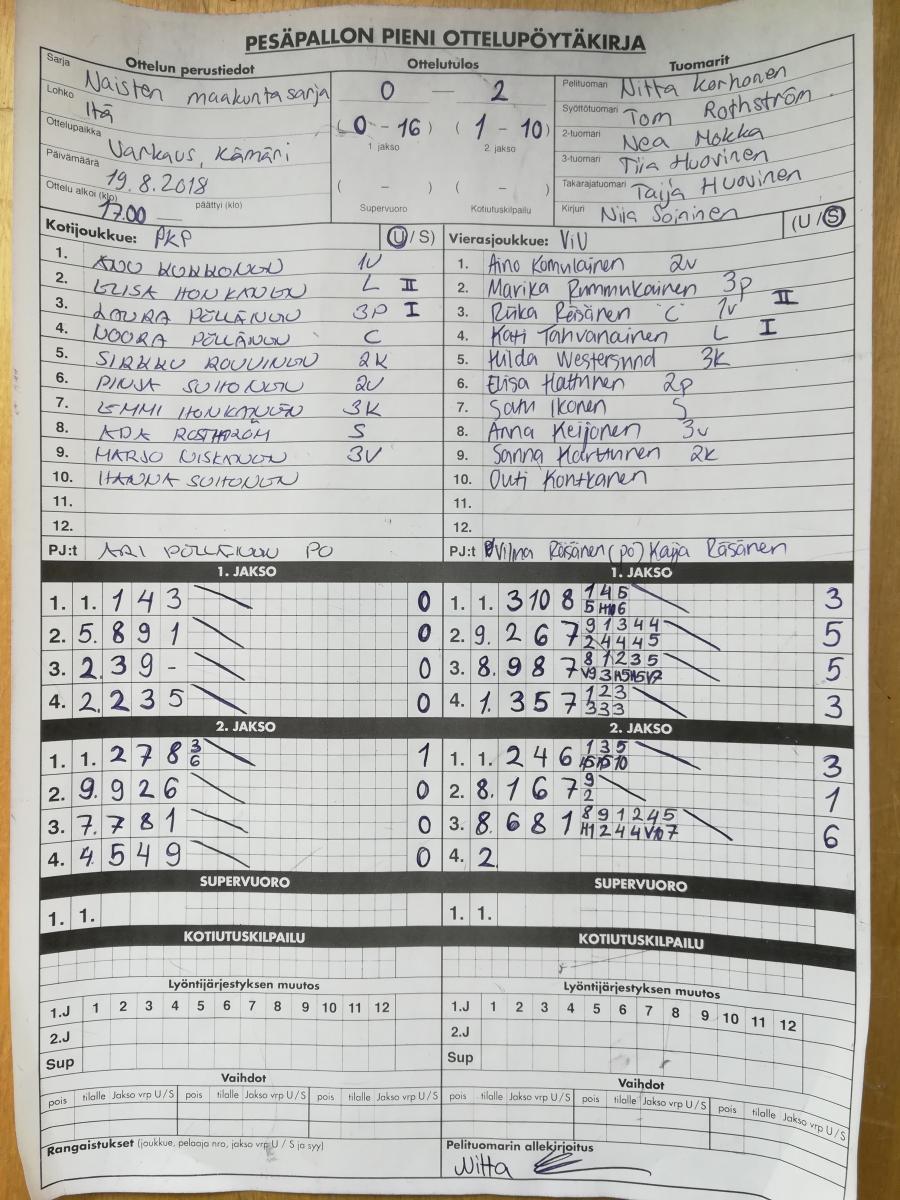 PESÄPALLON PIENI OTTELUPÖYTÄKIRJA
Sarja Ottelun perustiedot Ottelutulos Tuomarit
Naisten maakuntasarja 0 — 2 Pelituomari Nitta Korhonen
Lohko Itä Syöttötuomari Tom Rothström
Ottelupaikka Varkaus, Kämäri (0 - 16) (1 - 10) 2-tuomari Nea Mokka
1 jakso 2. jakso 3-tuomari Tiia Huovinen
Päivämäärä 19.8.2018 ( - ) ( - ) Takarajatuomari Taija Huovinen
Ottelu alkoi (klo) 17.00 päättyi (klo) Supervuoro Kotiutuskilpailu Kirjuri Niia Soininen
Kotijoukkue: PKP (U / S) Vierasjoukkue: ViU (U / S)
1. ANU KUKKONEN 1V 1. Aino Komulainen 2v
2. ELISA HONKANEN L II 2. Marika Rummukainen 3p
3. LAURA PÖLLÄNEN 3P I 3. Riika Räisänen "C" 1v II
4. NOORA PÖLLÄNEN C 4. Kati Tahvanainen L I
5. SIRKKU ROUVINEN 2K 5. Hilda Westersund 3K
6. PINJA SUHONEN 2V 6. Elisa Hattunen 2p
7. EMMI HONKANEN 3K 7. Satu Ikonen S
8. ADA ROTHSTRÖM S 8. Anna Keijonen 3v
9. MARJO NISKANEN 3V 9. Sanna Karttunen 2k
10. HANNA SUHONEN 10. Outi Kontkanen
11. 11.
12. 12.
PJ:t ARI PÖLLÄNEN PO PJ:t Vilma Räsänen (po) Kaija Räsänen
1. JAKSO 1. JAKSO
1. 1. 1 4 3 0 1. 1. 3 10 8 1 4 5 3
5 H10 6
2. 5. 8 9 1 0 2. 9. 2 6 7 9 1 3 4 4 5
2 4 4 4 5
3. 2. 3 9 - 0 3. 8. 9 8 7 8 1 2 3 5 5
V9 3 H5 H5 V7
4. 2. 2 3 5 0 4. 1. 3 5 7 1 2 3 3
3 3 3
2. JAKSO 2. JAKSO
1. 1. 2 7 8 3 1 1. 1. 2 4 6 1 3 5 3
6 10
2. 9. 9 2 6 0 2. 8. 1 6 7 9 1
2
3. 7. 7 8 1 0 3. 8. 6 8 1 8 9 1 2 4 5 6
H1 2 4 4 V10 7
4. 4. 5 4 9 0 4. 2.
SUPERVUORO SUPERVUORO
1. 1. 1. 1.
KOTIUTUSKILPAILU KOTIUTUSKILPAILU
Lyöntijärjestyksen muutos Lyöntijärjestyksen muutos
1.J 1 2 3 4 5 6 7 8 9 10 11 12 1.J 1 2 3 4 5 6 7 8 9 10 11 12
2.J 2.J
Sup Sup
Vaihdot Vaihdot
pois tilalle Jakso vrp U / S pois tilalle Jakso vrp U / S pois tilalle Jakso vrp U / S pois tilalle Jakso vrp U / S pois tilalle Jakso vrp U / S pois tilalle Jakso vrp U / S
Rangaistukset (joukkue, pelaaja nro, jakso vrp U / S ja syy) Pelituomarin allekirjoitus
Nitta